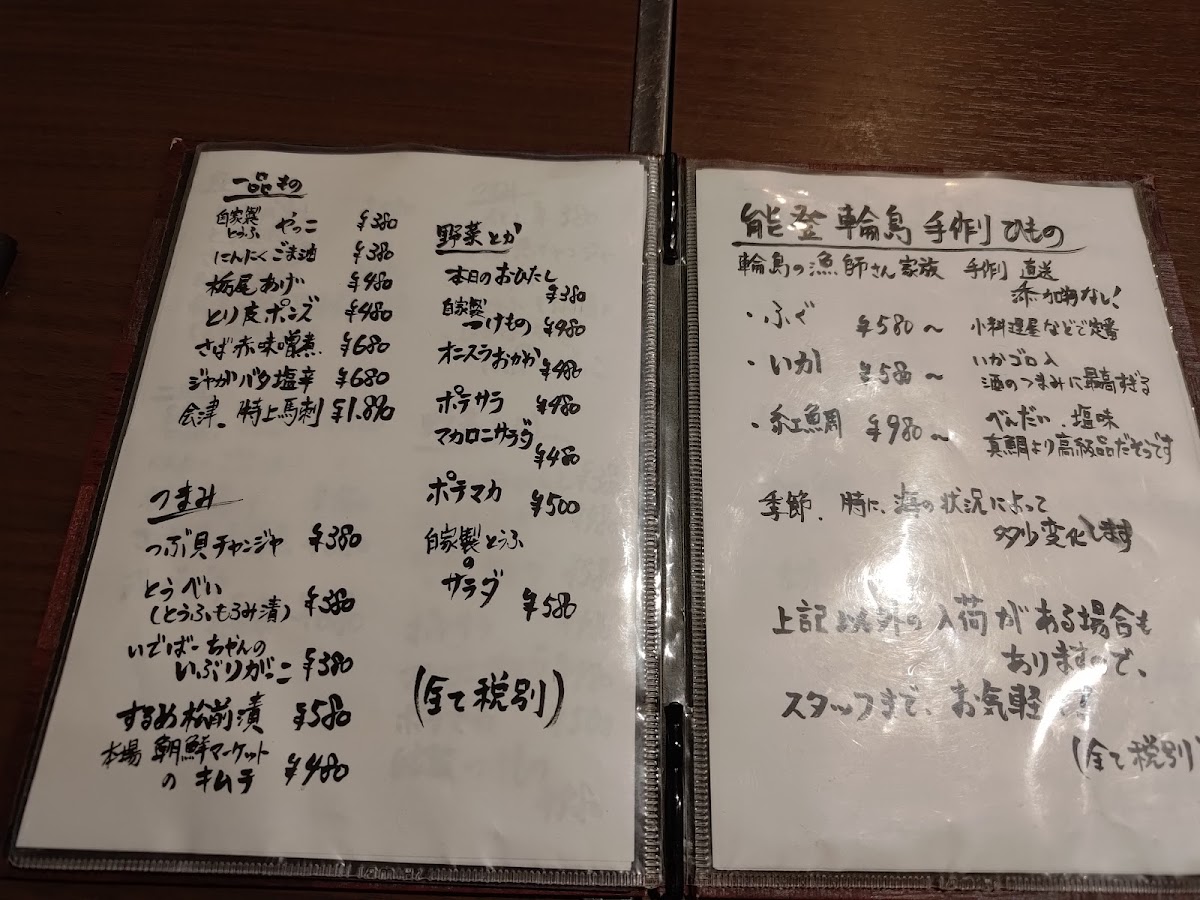 一品もの
自家製とうふ やっこ ¥380
にんにくごま油 ¥380
栃尾あげ ¥480
とり皮ポンズ ¥480
さば赤味噌煮 ¥680
ジャガバタ塩辛 ¥680
会津。特上馬刺
つまみ
つぶ貝チャンジャ ¥380
とうべい
(とうふもろみ漬) ¥380
いでばーちゃんの
いぶりがっこ ¥380
するめ松前漬 ¥580
本場 朝鮮マーケット
のキムチ ¥480
野菜とか
本日のおひたし
¥380
自家製
つけもの ¥480
オニスラおかか ¥480
ポテサラ ¥480
マカロニサラダ
¥480
ポテマカ ¥500
自家製とうふ
の
サラダ ¥580
(全て税別)
能登輪島手作りひもの
輪島の漁師さん家族 手作り 直送
添加物なし!
・ふぐ ¥580~ 小料理屋などで定番
・いか ¥580~ いかゴロ入
酒のつまみに最高すぎる
・紅鯛 ¥980~ べんだい。塩味
真鯛より高級品だそうです
季節、時に、海の状況によって
多少変化します
上記以外の入荷がある場合も
ありますので、
スタッフまで、お気軽に
(全て税別)